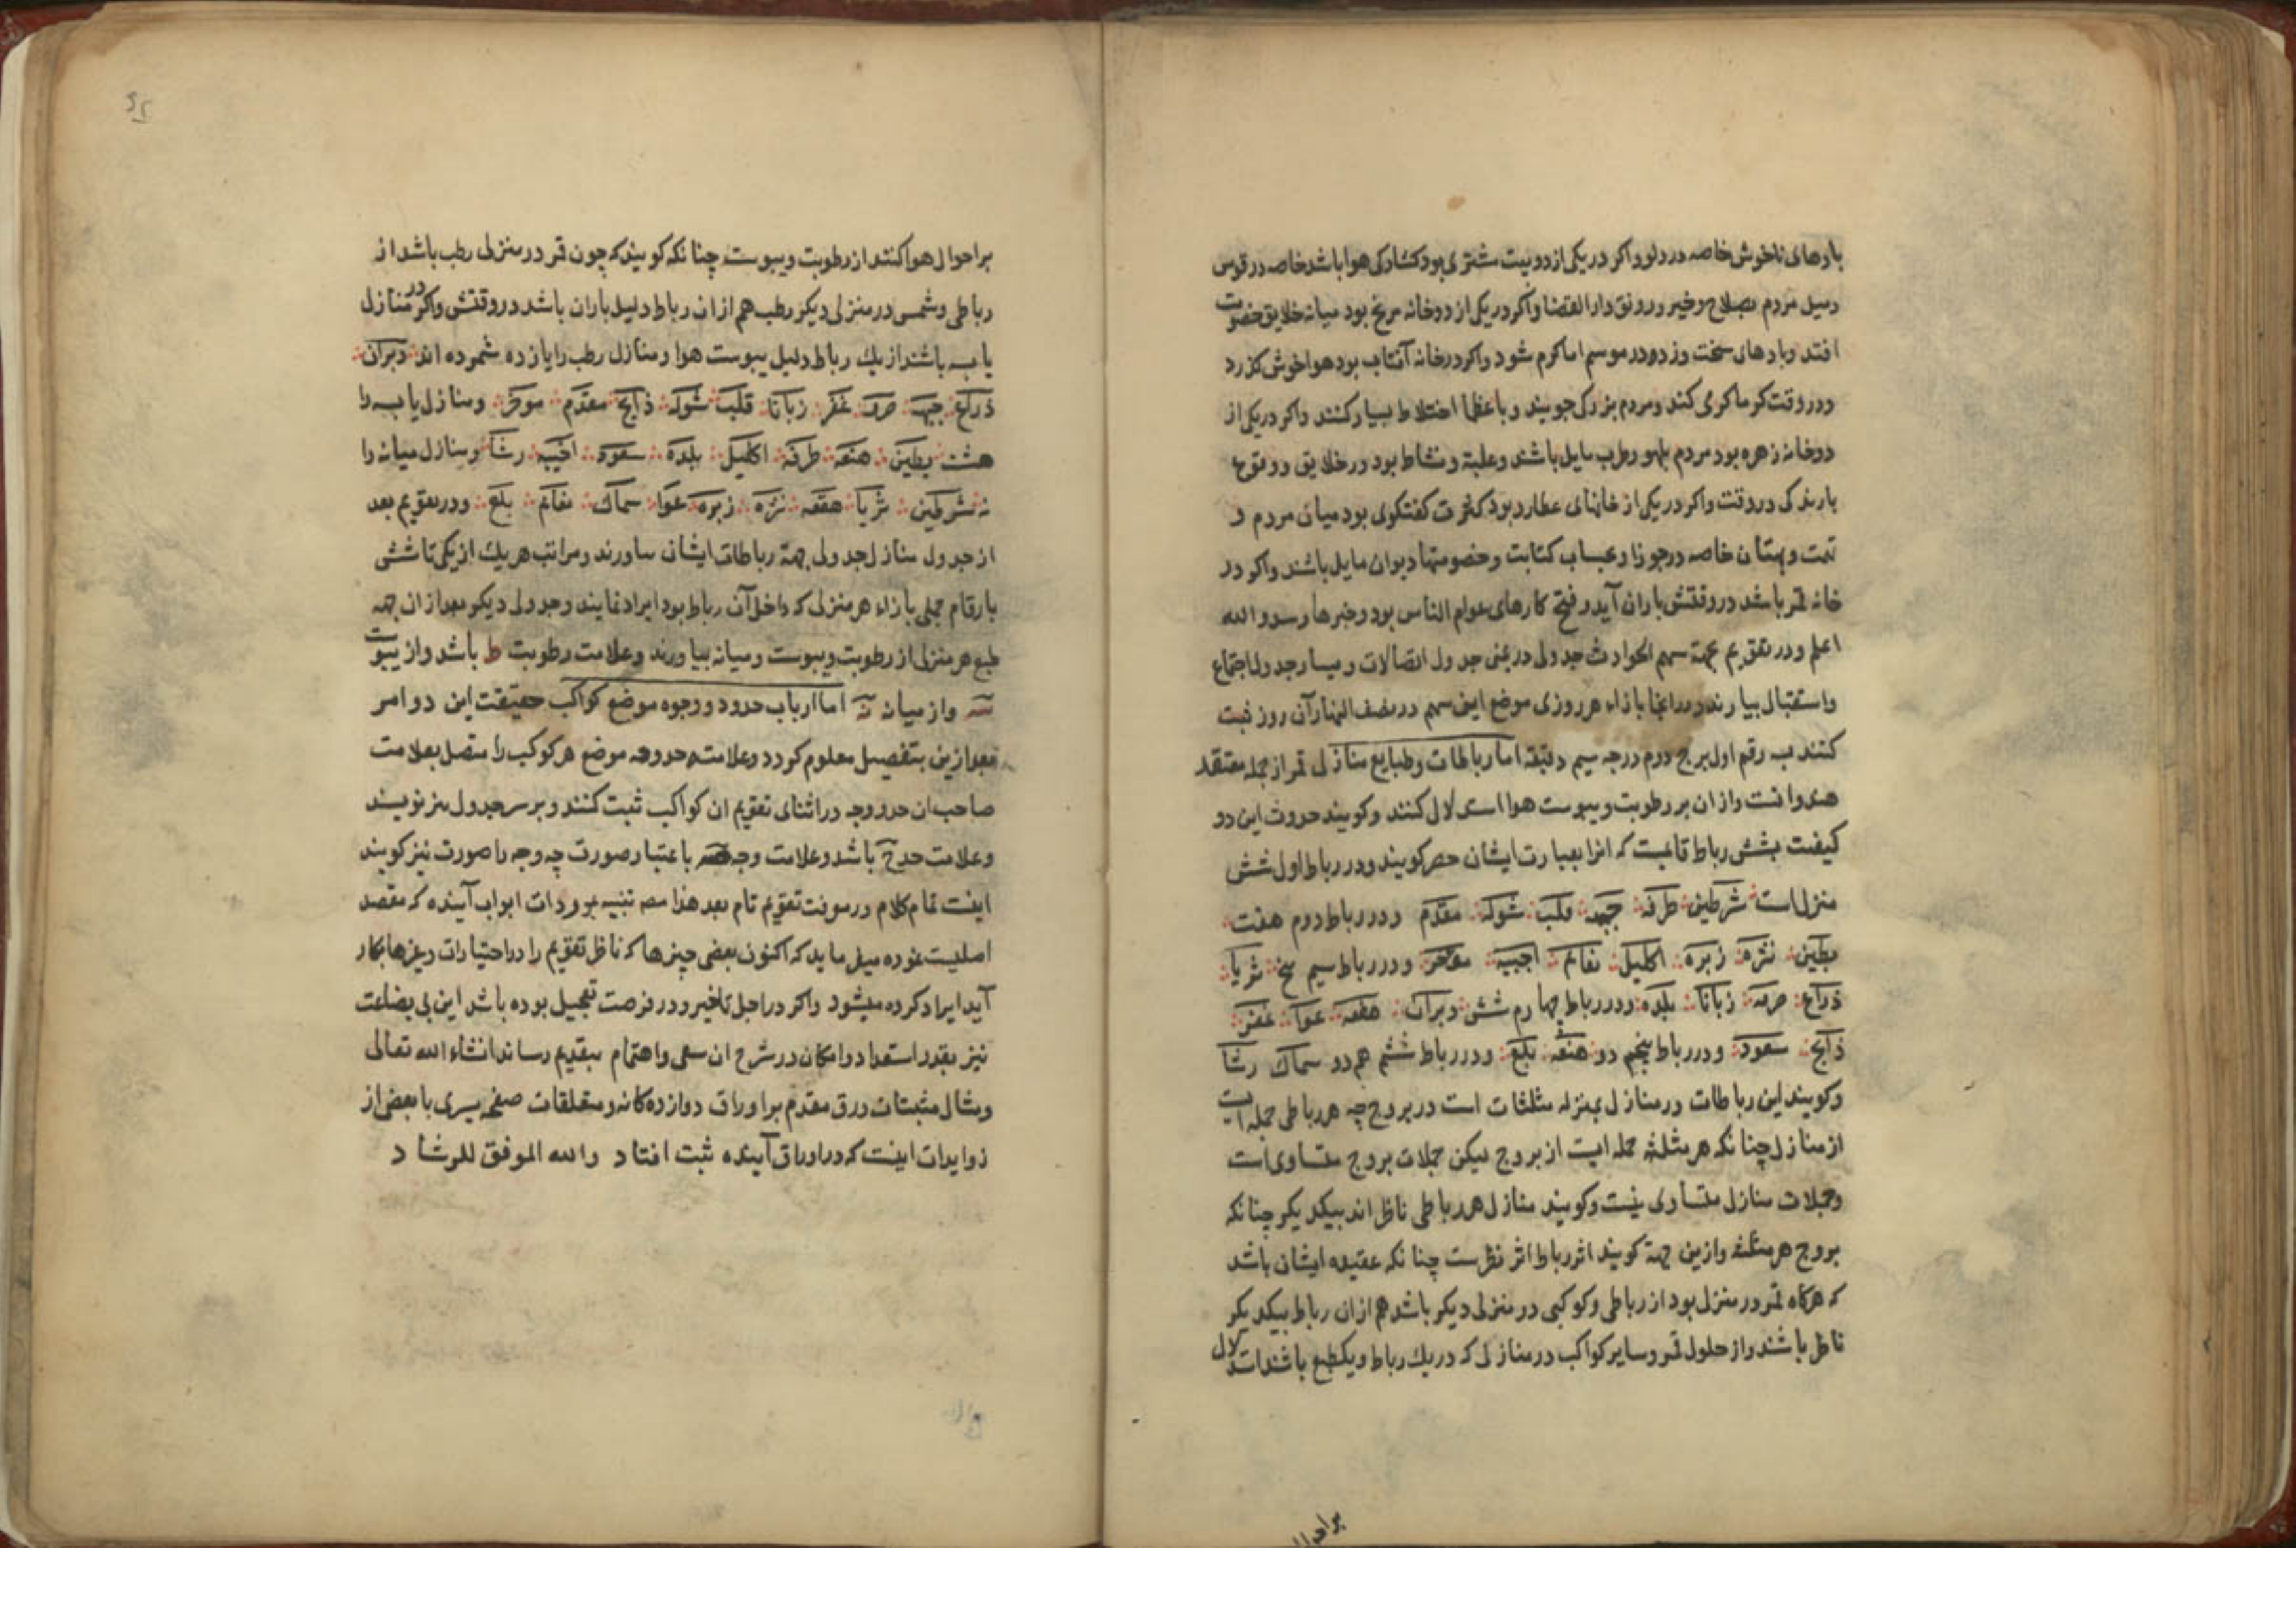 بادهای ناخوش خاصه در دلو و اکر در یکی از دو بیت مشتری بود کشادکی هوا باشد خاصه در قوس
و میل مردم بصلاح و خیر و رونق دار القضا و اکر در یکی از دو خانه مریخ بود میانه خلایق خصومت
افتد و بادهای سخت وزد و در موسم اما کرم شود و اکر در خانه آفتاب بود هوا خوش کذرد
و در وقت کرما کرمی کند و مردم بزرکی جویند و با عظما اختلاط بسیار کنند و اکر در یکی از
دو خانه زهره بود مردم بلهو و طرب مایل باشند و غلبه و نشاط بود در خلایق و وقوع
بارندکی در وقت و اکر در یکی از خانهای عطارد بود کثرت کفتکوی بود میان مردم و
تهمت و بهتان خاصه در جوزا و بحساب کتابت و خصومتها دیوان مایل باشند و اکر در
خانه قمر باشد در وقتش باران آید و فتح کارهای عوام الناس بود و خبرها رسد و الله
اعلم و در تقویم جهة سهم الحوادث جدولی در یمنی جدول اتصالات و یسار جدول اجتماع
و استقبال بیارند و در انجا بازاء هر روزی موضع این سهم در نصف النهار آن روز ثبت
کنند به رقم اول برج دوم درجه سیم دقیقه اما رباطات و طبایع منازل قمر از جمله معتقد
هندوانست و از ان بر رطوبت و یبوست هوا استدلال کنند و کویند حدوث این دو
کیفیت بشش رباط قایمست که انرا بعبارت ایشان حصر کویند و در رباط اول شش
منزل است شرطین طرفه جبهه قلب شوله مقدم و در رباط دوم هفت
بطین نثره زبره اکلیل نعایم اخبیه موخر و در رباط سیم پنج ثریا
ذراع صرفه زبانا بلده و در رباط چهارم شش دبران هقعه عوا غفر
ذابح سعود و در رباط پنجم دو هنعه بلع و در رباط ششم هم دو سماک رشا
و کویند این رباطات در منازل بمنزله مثلثات است در بروج چه هر رباطی جمله ایست
از منازل چنانکه هر مثلثه جمله ایست از بروج لیکن جملات بروج متساوی است
و جملات منازل متساوی نیست و کویند منازل هر رباطی ناظر اند بیکدیکر چنانکه
بروج هر مثلثه و از ین جهة کویند اثر رباط اثر نظرست چنانکه عقیده ایشان باشد
که هرکاه قمر در منزل بود از رباطی و کوکبی در منزلی دیکر باشد هم از ان رباط بیکدیکر
ناظر باشند و از حلول قمر و سایر کواکب در منازلی که در یک رباط و یکطبع باشند استدلال
بر احوال
بر احوال هوا کنند از رطوبت و یبوست چنانکه کویند که چون قمر در منزلی رطب باشد از
رباطی و شمس در منزلی دیکر رطب هم از ان رباط دلیل باران باشد در وقتش و اکر در منازل
یابسه باشند از یک رباط دلیل یبوست هوا و منازل رطب را یازده شمرده اند دبران
ذراع جبهه صرفه غفر زبانا قلب شوله ذابح مقدم موخر و منازل یابسه را
هشت بطین هنعه طرفه اکلیل بلده سعود اخبیه رشا و منازل میانه را
نه شرطین ثریا هقعه نثره زبره عوا سماک نعایم بلع و در تقویم بعد
از جدول منازل جدولی جهة رباطات ایشان بیاورند و مراتب هر یک از یکی تا شش
بارقام جملی بازاء هر منزلی که داخل آن رباط بود ایراد نمایند و جدولی دیکر بعد از ان جهه
طبع هر منزلی از رطوبت و یبوست و میانه بیاورند و علامت رطوبت ط باشد و از یبوست
سه و از میانه نه اما ارباب حدود و وجوه موضع کواکب حقیقت این دو امر
بعد ازین بتفصیل معلوم کردد و علامت حد و وجه موضع هر کوکب را متصل بعلامت
صاحب ان حد و وجه در اثنای تقویم ان کواکب ثبت کنند و بر سر جدول نیز نویسند
و علامت حد ح باشد و علامت وجه صه باعتبار صورت چه وجه را صورت نیز کویند
اینست تمام کلام در معرفت تقویم تام بعد هذا مصه تنبیه بر ورودات ابواب آینده که مقصد
اصلیست نموده میفرماید که اکنون بعضی چیزها که ناظر تقویم را در اختیارات و غیرها بکار
آید ایراد کرده میشود و اکر در اجل تاخیر و در فرصت تعجیل بوده باشد این بی بضاعت
نیز بقدر استعداد و امکان در شرح ان سعی و اهتمام بتقدیم رساند انشاء الله تعالی
و مثال مثبتات ورق مقدم بر اوراق دوازده کانه و متعلقات صفحه یسری با بعضی از
زوایدات اینست که در اوراق آینده ثبت افتاد والله الموفق للرشاد